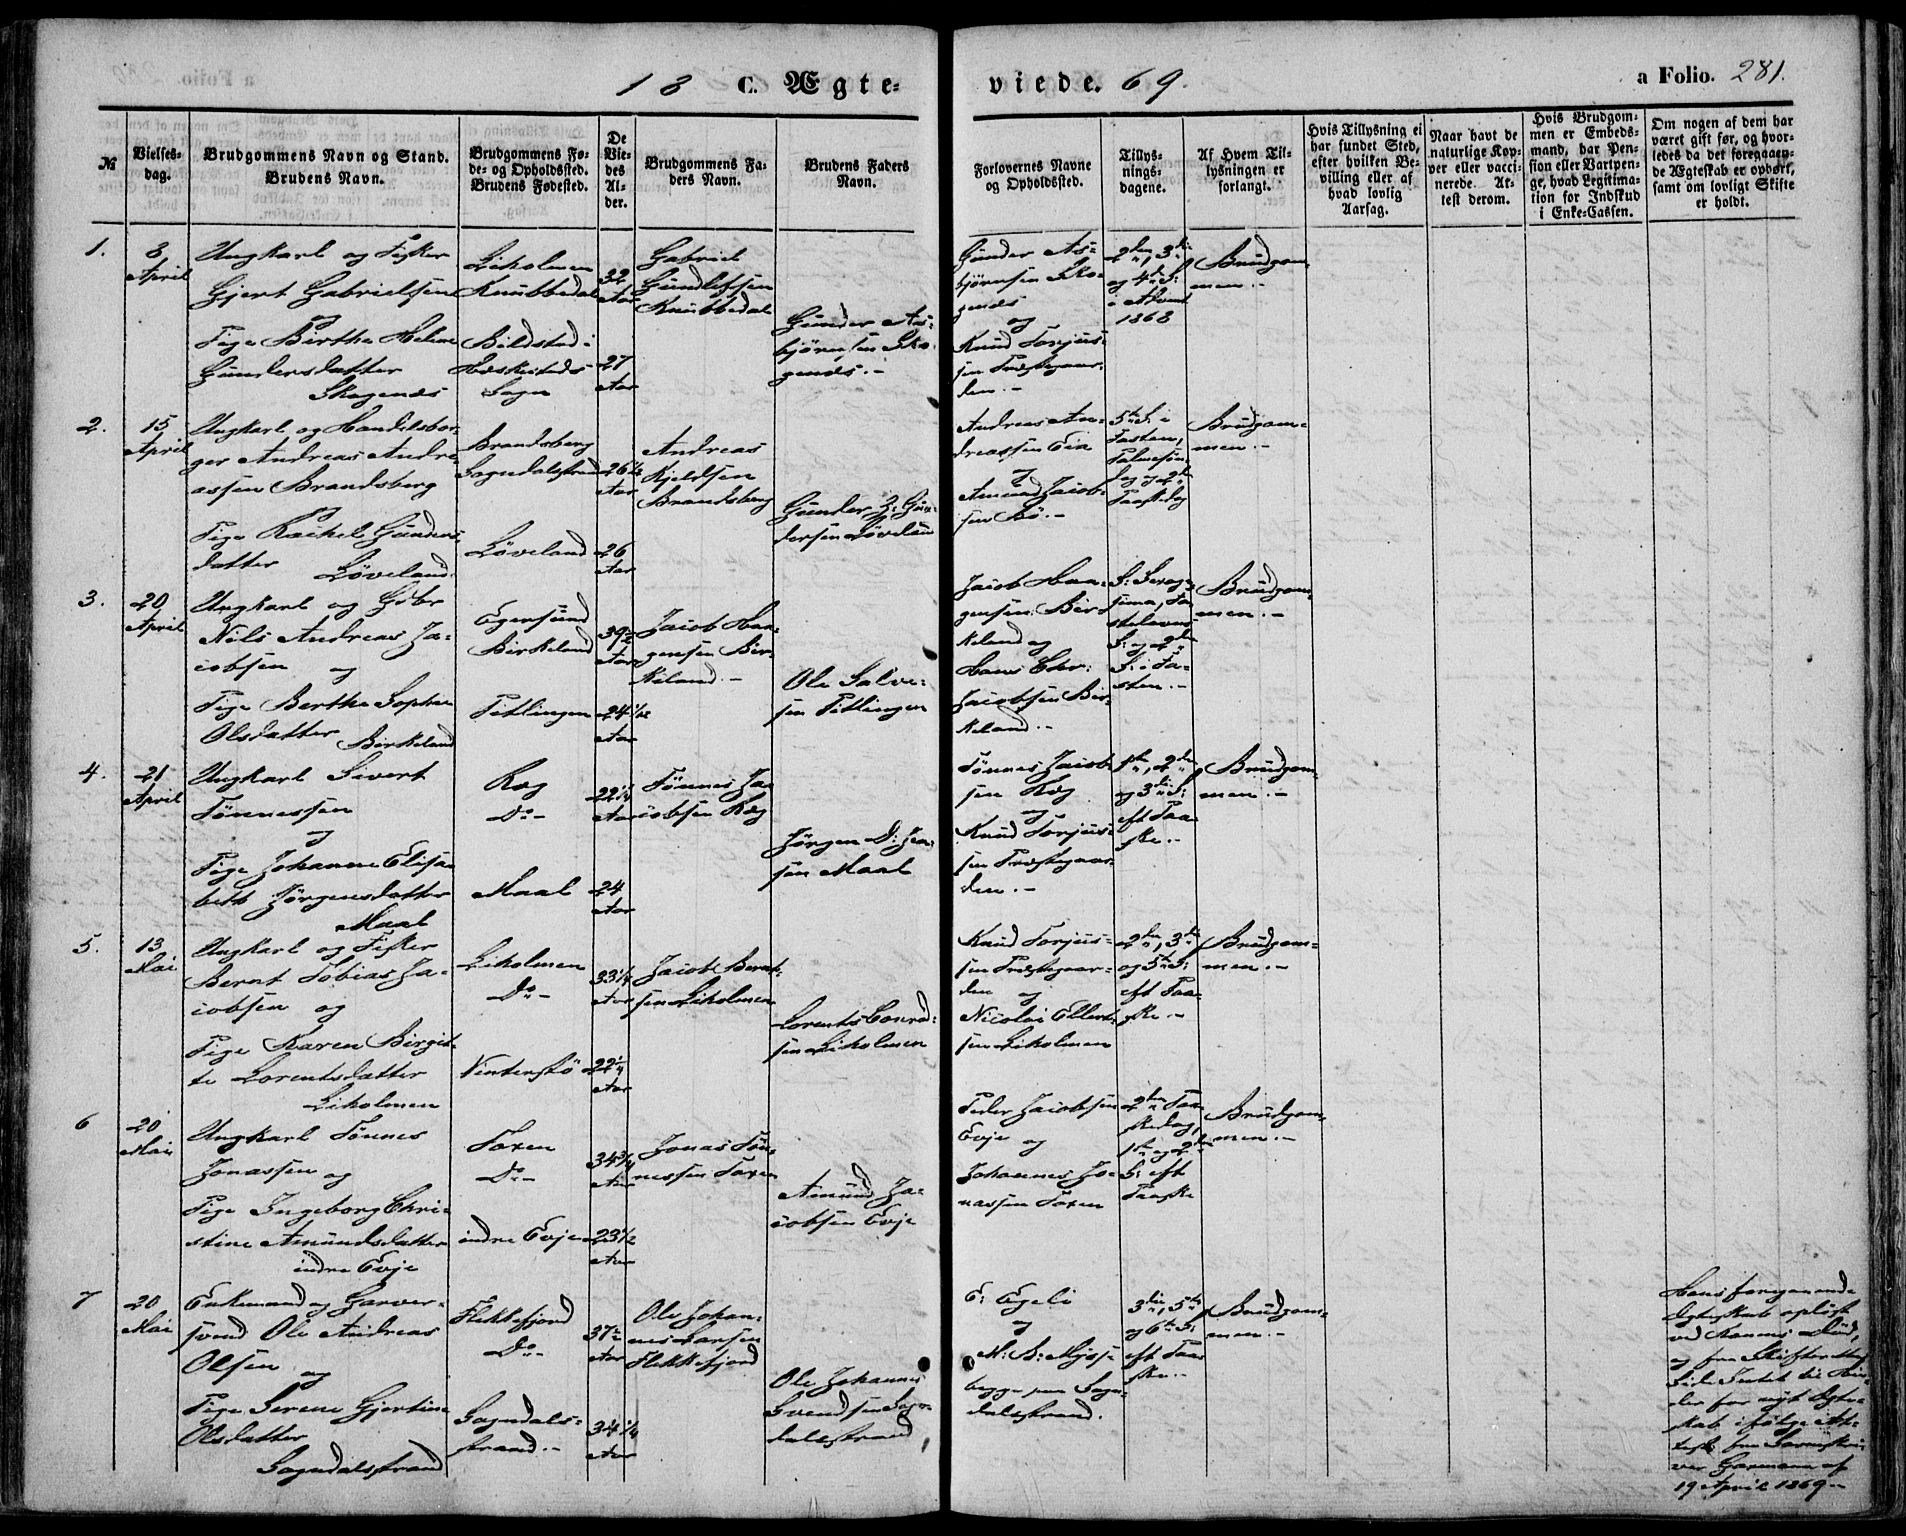 18 C. Ægte-
viede. 69.
a Folio. 281.
№
Vielses-
dag.
Brudgommens Navn og Stand.
Brudens Navn.
Brudgommens Fø-
de- og Opholdssted.
Brudens Fødested.
De
Vie-
des
Al-
der.
Brudgommens Fa-
ders Navn.
Brudens Faders
Navn.
Forlovernes Navne
og Opholdssted.
Tillys-
nings-
dagene.
Af Hvem Til-
lysningen er
forlangt.
Hvis Tillysning ei
har fundet Sted,
efter hvilken Be-
villing eller af
hvad lovlig
Aarsag.
Naar havt de
naturlige Kop-
per eller vacci-
nerede. At-
test derom.
Hvis Brudgom-
men er Embeds-
mand, har Pen-
sion eller Vartpen-
ge, hvad Legitima-
tion for Indskud
i Enke-Cassen.
Om nogen af dem har
været gift før, og hvor-
ledes da det foregaaen-
de Ægteskab er ophørt,
samt om lovligt Skifte
er holdt.
1.
8
April
Ungkarl og Fisker
Gjert Gabrielsen
og
Pige Berthe Helene
Gundersdatter
Skogenæs
Liholmen
Knubbedal
Bildstad i
Hæskestads
Sogn
32
Aar
27
Aar
Gabriel
Gundlefsen
Knubbedal
Gunder As-
bjørnsen Sko-
genæs.-
Gunder As-
bjørnsen Sko-
genæs
og
Knud Torjus-
sen Præstegaar-
den.-
2den, 3die
og 4de S:
i Advent
1868
Brudgom-
men.-
2.
15
April
Ungkarl og Handelsbor-
ger Andreas Andre-
assen Brandsberg
og
Pige Rachel Gunders-
datter
Løveland.
Brandsberg
Sogndalsstrand
Løveland
26½
Aar
26
Aar
Andreas
Kjeldsen
Brandsberg
Gunder Gun-
dersen Løveland
Andreas An-
dreassen Eia
og
Amund Jacob-
sen Bø.-
5te S: i
Fasten,
Palmesøn-
dag og 2den
Paaskedag
Brudgom-
men.-
3.
20
April
Ungkarl og Gdbr
Nils Andreas Ja-
cobsen og
Pige Berthe Sophie
Olsdatter Birkeland
Egersund
Birkeland
Pitlingen
39½
Aar
24
Aar
Jacob Haa-
gensen Bir-
keland.-
Ole Salve-
sen Pitlingen
Jacob Haa-
gensen Bir-
keland og
Hans Chr:
Jacobsen Bir-
keland.-
S: Sexage-
sima, Fa-
stelavns
S: og 2den
S: i Fa-
sten.-
Brudgom-
men.-
4.
21
April
Ungkarl Sivert
Tønnessen
og
Pige Johanne Elisa-
beth Jørgensdatter
Maal
Ræg
Do-
Maal
22¼
Aar
24
Aar
Tønnes Ja-
cobsen Ræg
Jørgen D: Jan-
sen Maal
Tønnes Jacob-
sen Ræg
og
Knud Torjus-
sen Præstegaar-
den.-
1ste, 2den
og 3die S:
eft Paa-
ske.-
Brudgom-
men.-
5.
13
Mai
Ungkarl og Fisker
Bernt Tobias Ja-
cobsen og
Pige Karen Birgit-
te Lorentsdatter
Liholmen
Liholmen
Do-
Vinterstø
33¼
Aar
22¼
Aar
Jacob Bernt-
sen Liholmen
Lorents Conrad-
sen Liholmen
Knud Torjus-
sen Præstegaar-
den og
Nicolai Ellert-
sen Liholmen
2den, 3die
og 5te S:
eft Paa-
ske.-
Brudgom-
men.-
6
20
Mai
Ungkarl Tønnes
Jonassen og
Pige Ingeborg Chri-
stine Amundsdatter
indre Evje
Foxen
Do-
indre Evje
34¾
Aar
23½
Aar
Jonas Tøn-
nessen Foxen
Amund Ja-
cobsen Evje
Peder Jacobsen
Evje og
Johannes Jo-
nassen Foxen
2den Paa-
skedag,
1ste og 2den
S: eft
Paaske
Brudgom-
men.-
7
20
Mai
Enkemand og Garver-
svend Ole Andreas
Olsen og
Pige Serene Gjertine
Olsdatter
Sogndalsstrand
Flekkefjord
Do-
Sogndals-
strand.-
37½
Aar
34¼
Aar
Ole Johan-
nes Larsen
Flekkefjord
Ole Johannes
Svendsen Sogn-
dalsstrand
E: Egeli
og
M: B: Mysse
begge paa Sogn-
dalsstrand.
3die, 5te
og 6te S:
eft Paa-
ske.-
Brudgom-
men.-
Hans foregaaende
Ægteskab opløst
ved Konens Død,
og fra Skifterettens
Side Intet til Hin-
der for nyt Ægte-
skab ifølge At-
test fra Sorenskri-
ver Garmann af
19 April 1869.-